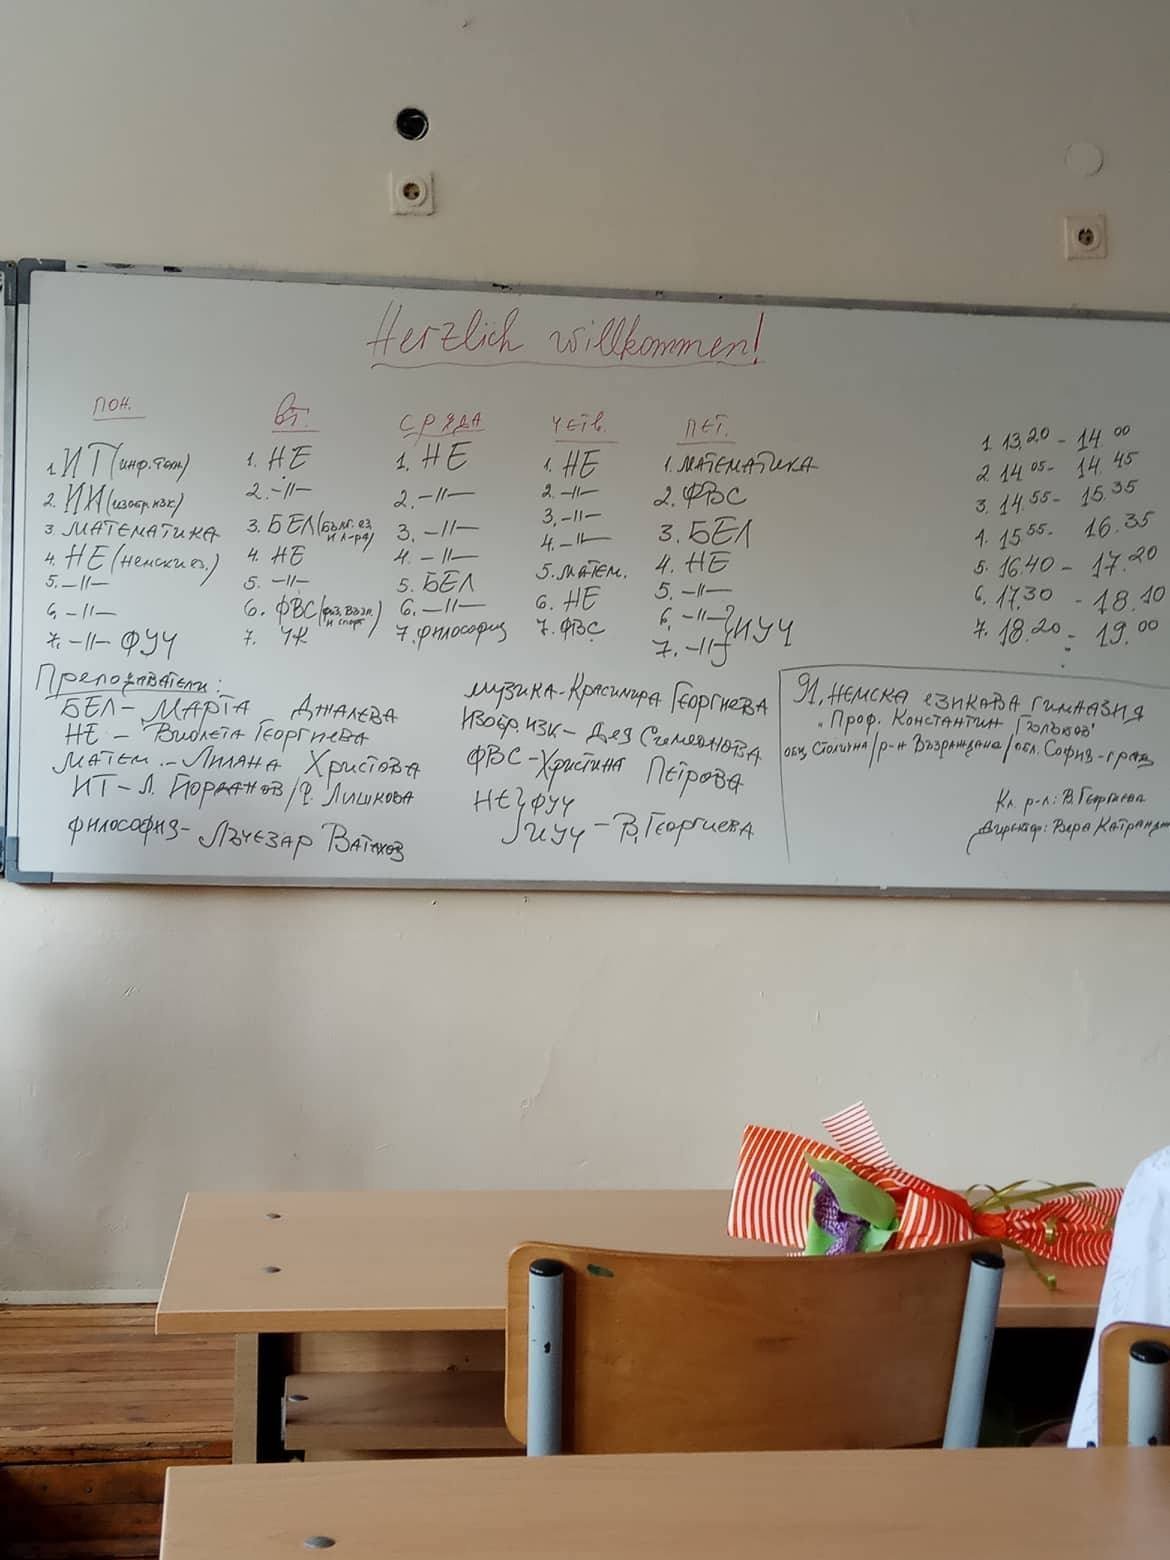 Herzlich willkommen!
ПОН.
1. ИТ (инф. тех)
2. ИИ (изобр. изк)
3. МАТЕМАТИКА
4. НЕ (немски ез.)
5. -||-
6. -||-
7. -||- ФУЧ
ВТ.
1. НЕ
2. -||-
3. БЕЛ (Бълг. ез. и л-ра)
4. НЕ
5. -||-
6. ФВС (физ. възп. и спорт)
7. ЧК
СРЯДА
1. НЕ
2. -||-
3. -||-
4. -||-
5. БЕЛ
6. -||-
7. философия
ЧЕТВ.
1. НЕ
2. -||-
3. -||-
4. -||-
5. МАТЕМ.
6. НЕ
7. ФВС
ПЕТ.
1. МАТЕМАТИКА
2. ФВС
3. БЕЛ
4. НЕ
5. -||-
6. -||- } ИУЧ
7. -||-
1. 13.20 - 14.00
2. 14.05 - 14.45
3. 14.55 - 15.35
4. 15.55 - 16.35
5. 16.40 - 17.20
6. 17.30 - 18.10
7. 18.20 - 19.00
Преподаватели:
БЕЛ - МАРТА ДЖАЛЕВА
НЕ - Виолета Георгиева
МАТЕМ. - Лиляна Христова
ИТ - Л. Йорданов / Г. Лишкова
философия - Лъчезар
музика - Красимира Георгиева
Изобр. изк - Дея Симеонова
ФВС - Христина Петрова
НЕ } ФУЧ
ИУЧ - В. Георгиева
91. НЕМСКА ЕЗИКОВА ГИМНАЗИЯ
"Проф. Константин Гълъбов"
общ. Столична / р-н Възраждане / обл. София-град
Кл. р-л: В. Георгиева
Директор: Вера